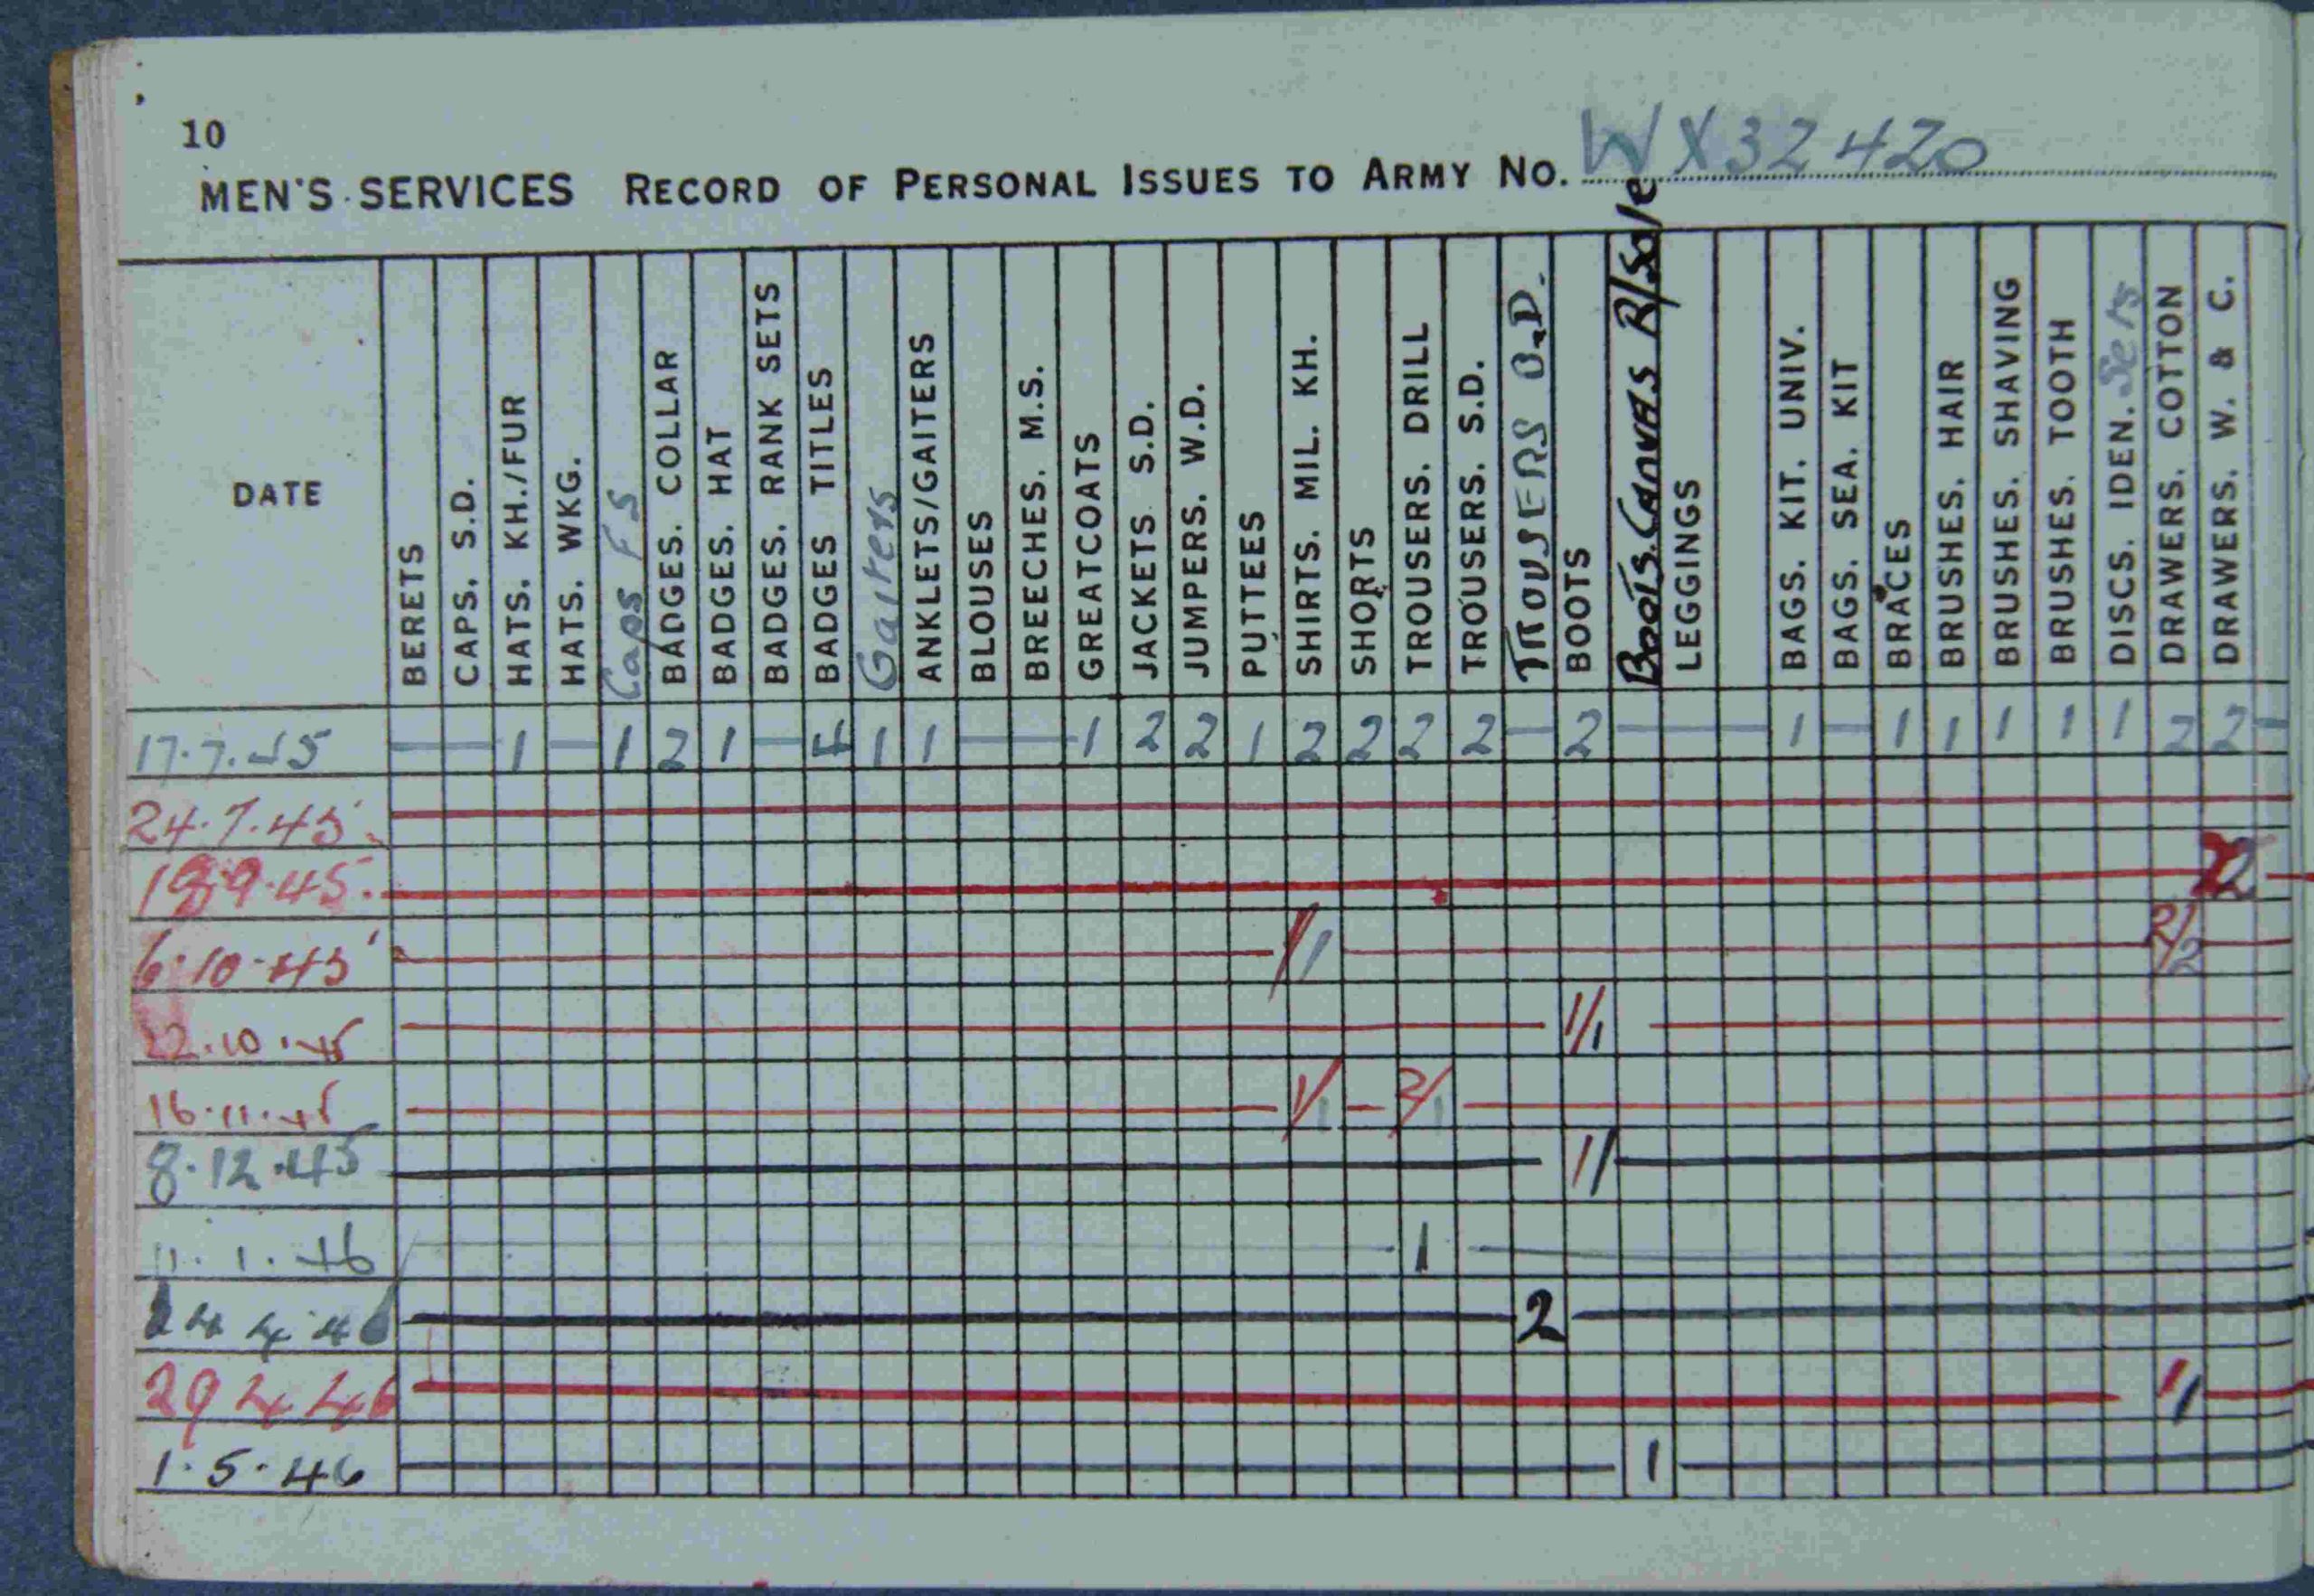 10
MEN'S SERVICES RECORD OF PERSONAL ISSUES TO ARMY NO. WX32420
DATE
BERETS
CAPS. S.D.
HATS. KH./FUR
HATS. WKG.
Caps F S
BADGES. COLLAR
BADGES. HAT
BADGES. RANK SETS
BADGES TITLES
Gaiters
ANKLETS/GAITERS
BLOUSES
BREECHES. M.S.
GREATCOATS
JACKETS S.D.
JUMPERS. W.D.
PUTTEES
SHIRTS. MIL. KH.
SHORTS
TROUSERS. DRILL
TROUSERS. S.D.
TROUSERS B.D.
BOOTS
Boots. Canvas R/Sole
LEGGINGS
BAGS. KIT. UNIV.
BAGS. SEA. KIT
BRACES
BRUSHES. HAIR
BRUSHES. SHAVING
BRUSHES. TOOTH
DISCS. IDEN. Sets
DRAWERS. COTTON
DRAWERS. W. & C.
17.7.45 — — 1 — 1 2 1 — 1 1 — — 1 2 2 1 2 2 2 2 — 2 — — — 1 — 1 1 1 1 1 2 2 —
24.7.45
18.9.45. 2
6.10.45 1/1 2/2
22.10.45 1/1
16.11.45 1/1 — 2/1
8.12.45 1/
11.1.46 1
24 4 46 2
29 4 46 1/1
1.5.46 1